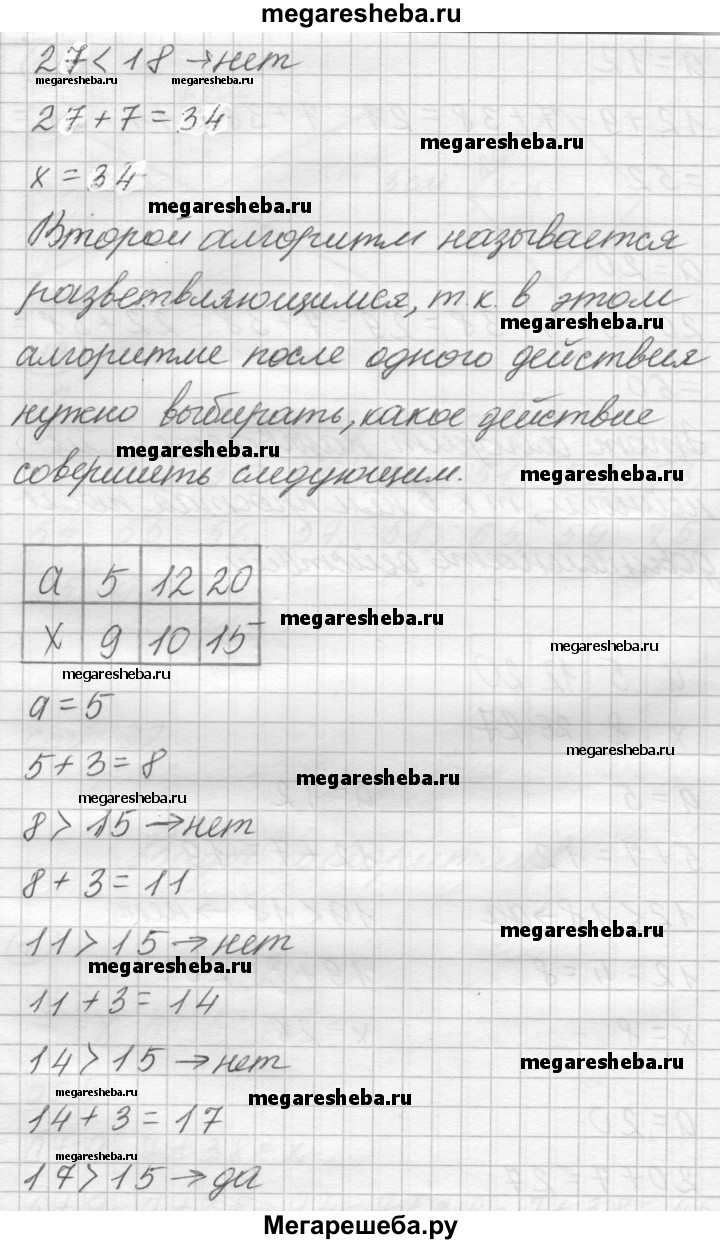 megaresheba.ru
27 < 18 → нет
megaresheba.ru megaresheba.ru
27 + 7 = 34
megaresheba.ru
x = 34
megaresheba.ru
Второй алгоритм называется
разветвляющимся, т.к. в этом
megaresheba.ru
алгоритме после одного действия
нужно выбирать, какое действие
megaresheba.ru
совершить следующим.
megaresheba.ru
a 5 12 20
megaresheba.ru
x 9 10 15
megaresheba.ru
megaresheba.ru
a = 5
megaresheba.ru
5 + 3 = 8
megaresheba.ru
megaresheba.ru
8 > 15 → нет
8 + 3 = 11
megaresheba.ru
11 > 15 → нет
megaresheba.ru
11 + 3 = 14
14 > 15 → нет
megaresheba.ru
megaresheba.ru
megaresheba.ru
14 + 3 = 17
17 > 15 → да
Мегарешеба.ру